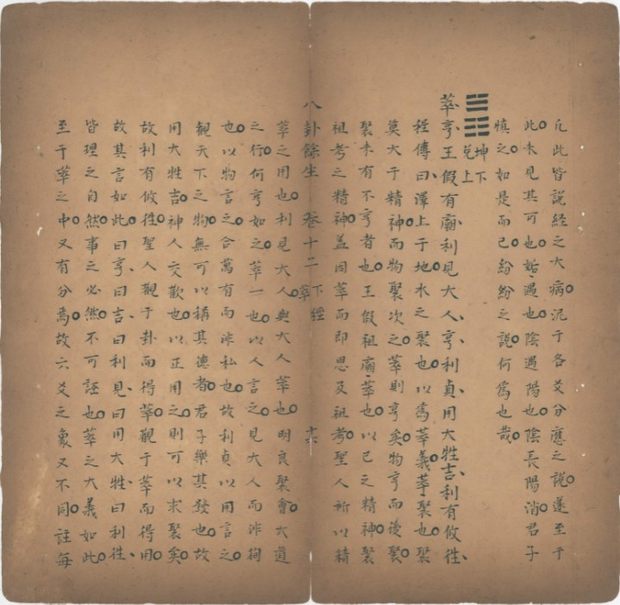 凡此皆說經之大病泥于各爻分應之說遂至于
此未見其可也姤遇也陰遇陽也陰長陽消君子
慎之如是而已紛紛之說何為也哉
坤下
兌上
萃亨王假有廟利見大人亨利貞用大牲吉利有攸往
程傳曰澤上于地水之聚也以為萃義萃聚也聚
莫大于精神而物聚次之萃則亨矣物亨而後聚
聚未有不亨者也王假祖廟萃也以己之精神聚
祖考之精神蓋因萃而即思及祖考聖人所以精
八卦餘生 卷十二 下經 萃 十六
萃之用也利見大人與大人萃也明良聚會大道
之行何亨如之萃一也以人言之見大人而非徇
也以物言之合萬有而非私也故利貞以用言之
觀天下之物無可以稱其德者君子樂其發也故
用大牲吉神人交歡也以正用之則可以求聚矣
故利有攸往聖人觀于卦而得萃觀于萃而得用
故其言如此曰亨曰吉曰利見曰用大牲曰利往
皆理之自然事之必然不可誣也萃之大義如此
至于萃之中又有分焉故六爻之象又不同註每